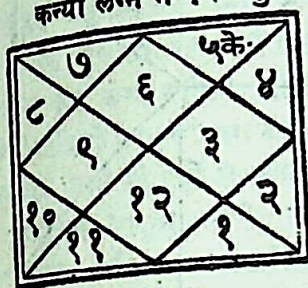 कन्या लग्न
७ ६ ५के. ४
८
९ ३
१० १२ २
११ १